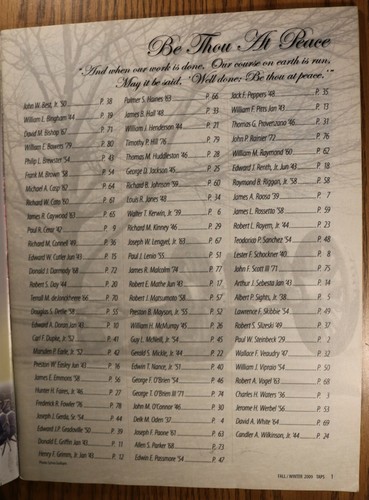 Be Thou At Peace
"And when our work is done, Our course on earth is run,
May it be said, 'Well done; Be thou at peace.'"
John W. Best, Jr. '50 P. 38
William E. Bingham '44 P. 19
David M. Bishop '67 P. 71
William E. Bowers '79 P. 80
Philip L. Brewster '54 P. 43
Frank M. Brown '58 P. 54
Michael A. Cargi '62 P. 64
Richard W. Cato '60 P. 61
James R. Caywood '63 P. 65
Paul R. Cerar '42 P. 9
Richard M. Connell '49 P. 36
Edward W. Cutler Jun '43 P. 15
Donald J. Dermody '68 P. 72
Robert S. Day '44 P. 20
P. 70
Douglas S. Dettie '58 P. 55
Edward A. Doran Jan '43 P. 10
Carl F. Dupke, Jr '52 P. 41
Marsden P. Earle, Jr '52 P. 42
Preston W. Easley Jun '43 P. 16
James E. Emmons '58 P. 56
Hunter H. Faires, Jr. '46 P. 27
Frederick B. Fowler '76 P. 78
Joseph J. Gerda, Sr. '54 P. 44
Edward J.P. P. 39
Donald E. Griffin Jan '43 P. 11
Henry E. Grimm, Jr Jan '43 P. 12
Palmer S. Haines '63 P. 66
James B. Hall '48 P. 33
William J. Henderson '44 P. 21
Timothy P. Hill '76 P. 79
Thomas M. Huddleston '46 P. 28
George D. Jackson '45 P. 25
Richard B. Johnson '59 P. 60
Louis R. Jones '48 P. 34
Walter T. Kerwin, Jr '39 P. 6
Richard M. Kinney '46 P. 29
Joseph W. Lengyel, Jr. '63 P. 67
Paul J. Lenio '55 P. 51
James R. Malcolm '74 P. 77
Robert E. Mathe Jun '43 P. 17
Robert I. Matsumoto '58 P. 57
Preston B. Mayson, Jr '55 P. 52
William H. McMurray '45 P. 26
Guy L. McNeill, Jr '54 P. 45
Gerald S. Mickle, Jr '44 P. 22
Edwin T. Nance, Jr '51 P. 40
George F. O'Brien '54 P. 46
George T. O'Brien III '71 P. 74
John M. O'Connor '46 P. 30
Delk M. Oden '37 P. 4
Joseph F. Paone '61 P. 63
Allen S. Parker '68 P. 73
Edwin E. Passmore '54 P. 47
Jack F. Peppers '48 P. 35
William F. Pitts Jan '43 P. 13
Thomas G. Provenzano '46 P. 31
John P. Rainier '72 P. 76
William M. Raymond '60 P. 62
Edward J. Renth, Jr Jun '43 P. 18
Raymond B. Riggan, Jr '58 P. 58
James A. Roosa '39 P. 7
James L. Rossetto '58 P. 59
Robert L. Royem, Jr '44 P. 23
Teodorico P. Sanchez '54 P. 48
Lester F. Schockner '40 P. 8
John F. Scott III '71 P. 75
Arthur J. Sebesta Jan '43 P. 14
Albert P. Sights, Jr '38 P. 5
Lawrence F. Skibbie '54 P. 49
Robert S. Slizeski '49 P. 37
Paul W. Steinbeck '29 P. 2
Wallace F. Veaudry '47 P. 32
William J. Vipraio '54 P. 50
Robert A. Vogel '63 P. 68
Charles H. Waters '36 P. 3
Jerome H. Werbel '56 P. 53
David A. White '64 P. 69
Candler A. Wilkinson, Jr '44 P. 24
FALL/WINTER 2009 TAPS 1